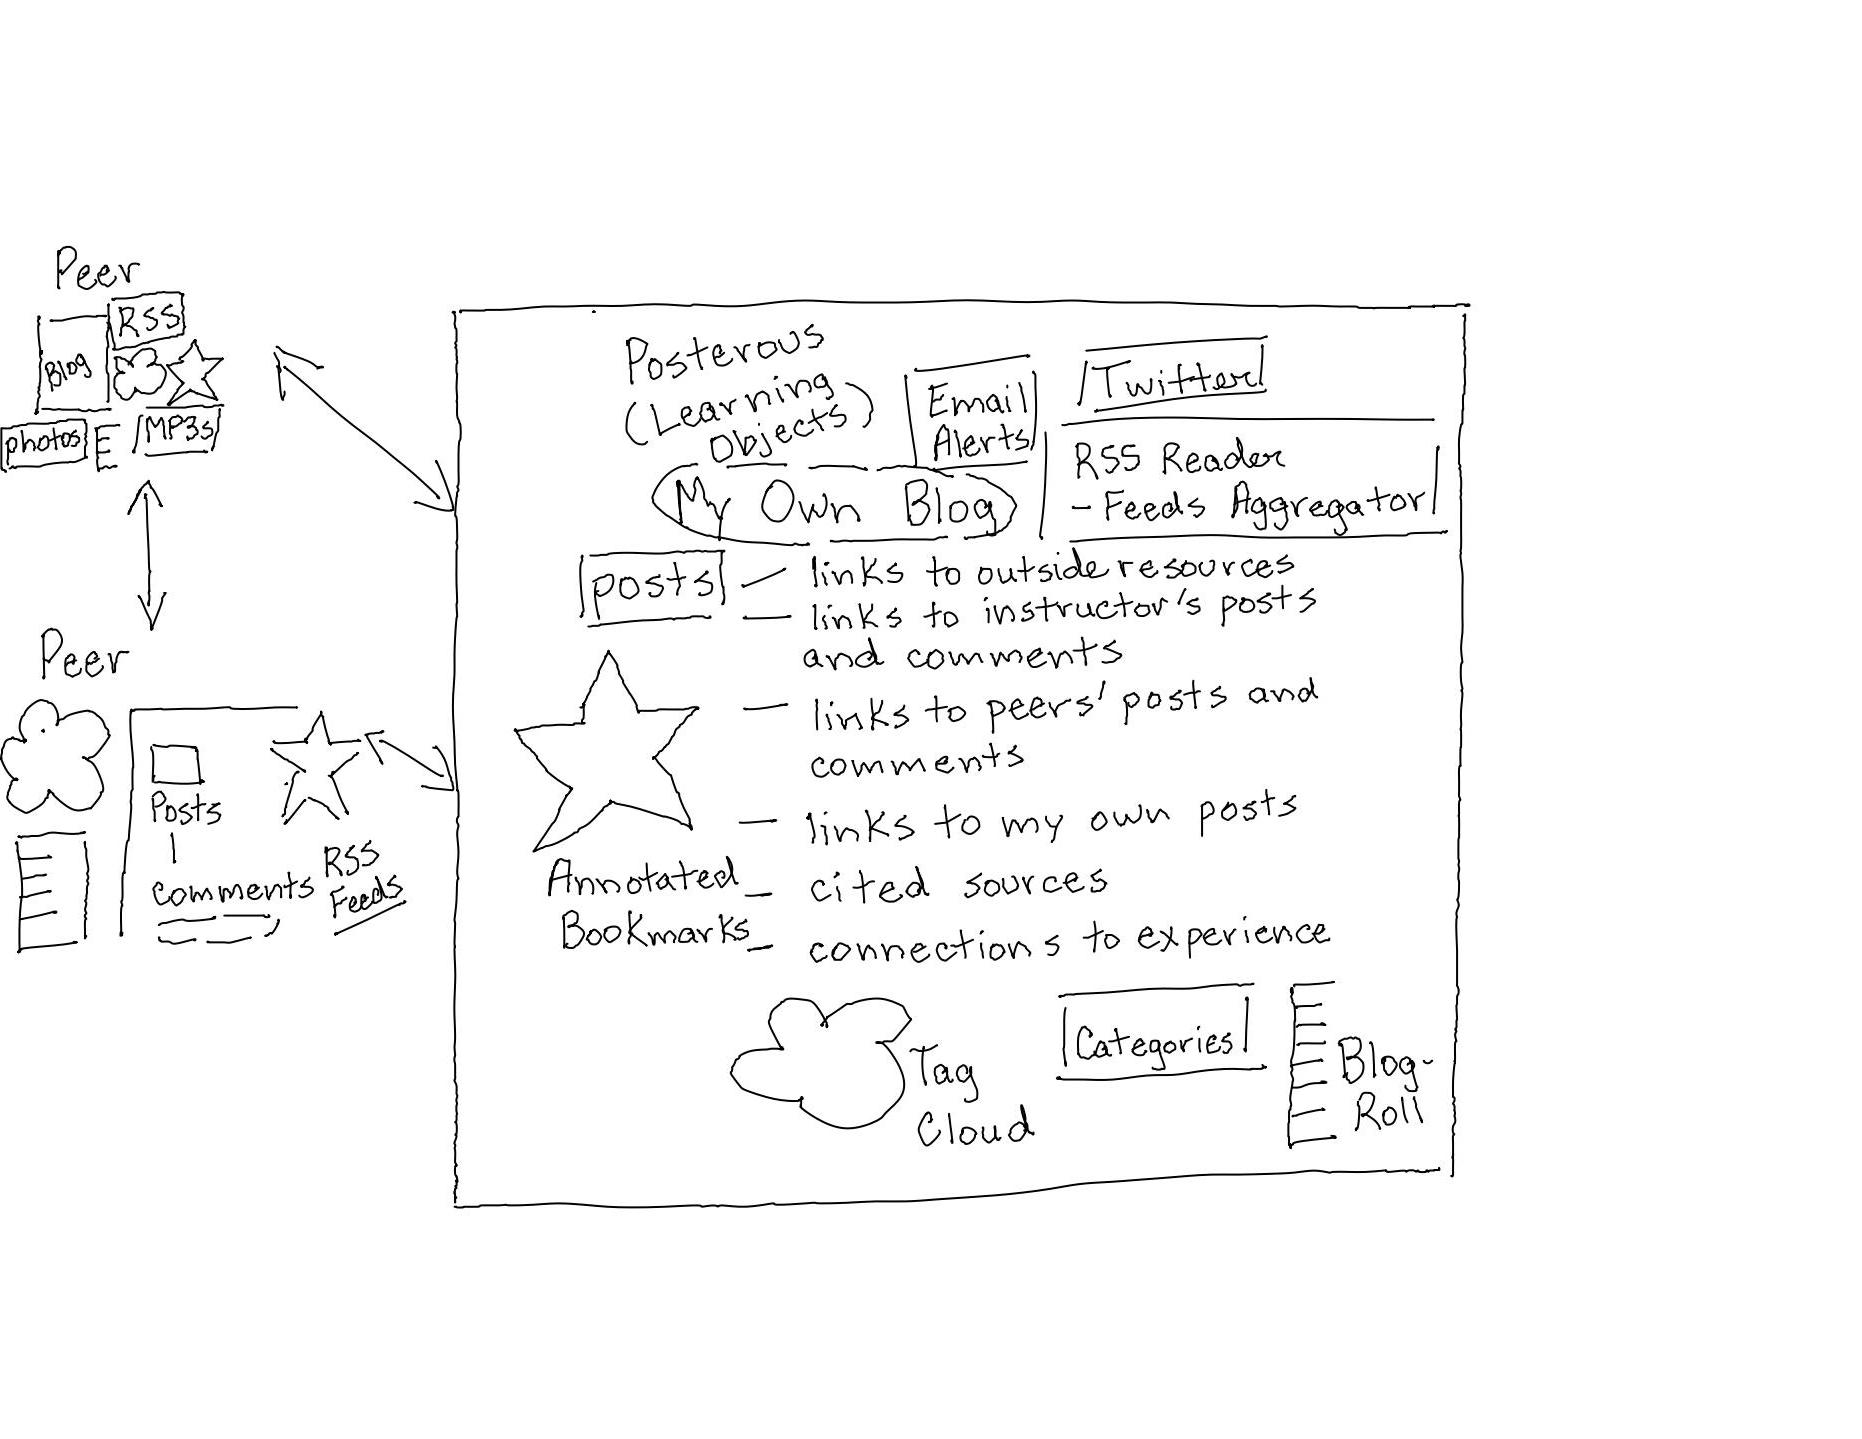 Peer
RSS
Blog
photos
MP3s
Peer
Posts
comments
RSS
Feeds
Posterous
(Learning
Objects)
Email
Alerts
Twitter
RSS Reader
- Feeds Aggregator
My Own Blog
posts
- links to outside resources
- links to instructor's posts
and comments
- links to peers' posts and
comments
- links to my own posts
Annotated
Bookmarks
- cited sources
- connections to experience
Tag
Cloud
Categories
Blog-
Roll